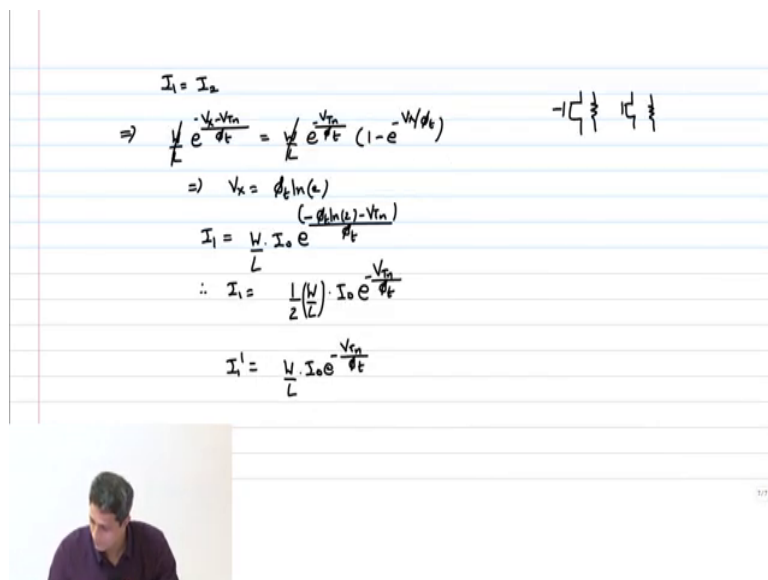 I₁ = I₂
⇒ W/L e^((-Vx-VTn)/ϕt) = W/L e^(-VTn/ϕt) (1-e^(-Vx/ϕt))
⇒ Vx = ϕt ln(2)
I₁ = W/L · I₀ e^((-ϕt ln(2)-VTn)/ϕt)
∴ I₁ = 1/2 (W/L) · I₀ e^(-VTn/ϕt)
I₁' = W/L · I₀ e^(-VTn/ϕt)
7/7